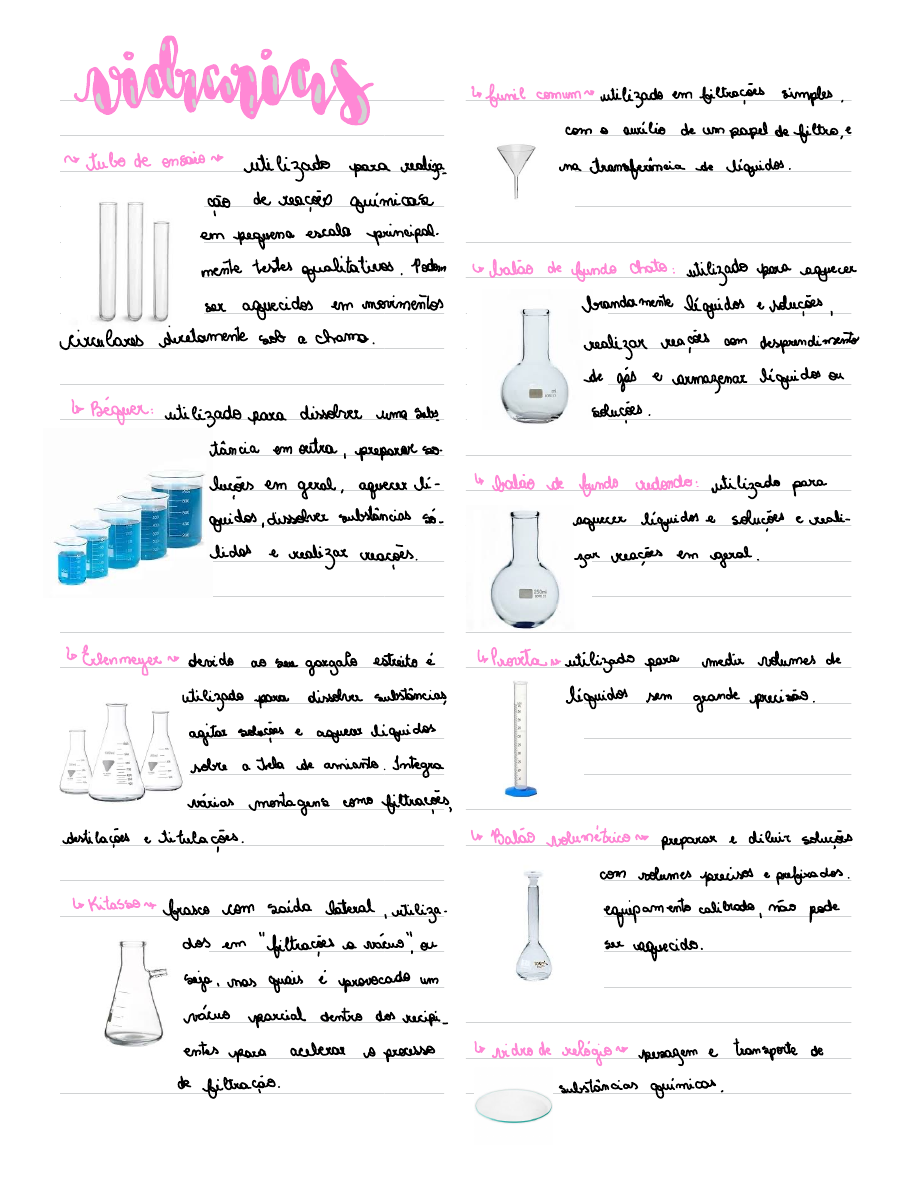 vidrarias
~ tubo de ensaio ~ utilizado para realiza-
ção de reações químicas e
em pequena escala principal-
mente testes qualitativos. Podem
ser aquecidos em movimentos
circulares diretamente sob a chama.
↳ Béquer: utilizado para dissolver uma subs-
tância em outra, preparar so-
luções em geral, aquecer lí-
quidos, dissolver substâncias só-
lidas e realizar reações.
↳ Erlenmeyer ~ devido ao seu gargalo estreito é
utilizado para dissolver substâncias,
agitar soluções e aquecer líquidos
sobre a tela de amianto. Integra
várias montagens como filtrações,
destilações e titulações.
↳ Kitasso ~ frasco com saída lateral, utiliza-
dos em "filtrações a vácuo", ou
seja, nas quais é provocado um
vácuo parcial dentro dos recipi-
entes para acelerar o processo
de filtração.
↳ funil comum ~ utilizado em filtrações simples,
com o auxílio de um papel de filtro, e
na transferência de líquidos.
↳ balão de fundo chato: utilizado para aquecer
brandamente líquidos e soluções,
realizar reações com desprendimento
de gás e armazenar líquidos ou
soluções.
↳ balão de fundo redondo: utilizado para
aquecer líquidos e soluções e reali-
zar reações em geral.
250ml
↳ Proveta ~ utilizado para medir volumes de
líquidos sem grande precisão.
↳ Balão volumétrico ~ preparar e diluir soluções
com volumes precisos e prefixados.
equipamento calibrado, não pode
ser aquecido.
↳ vidro de relógio ~ pesagem e transporte de
substâncias químicas.